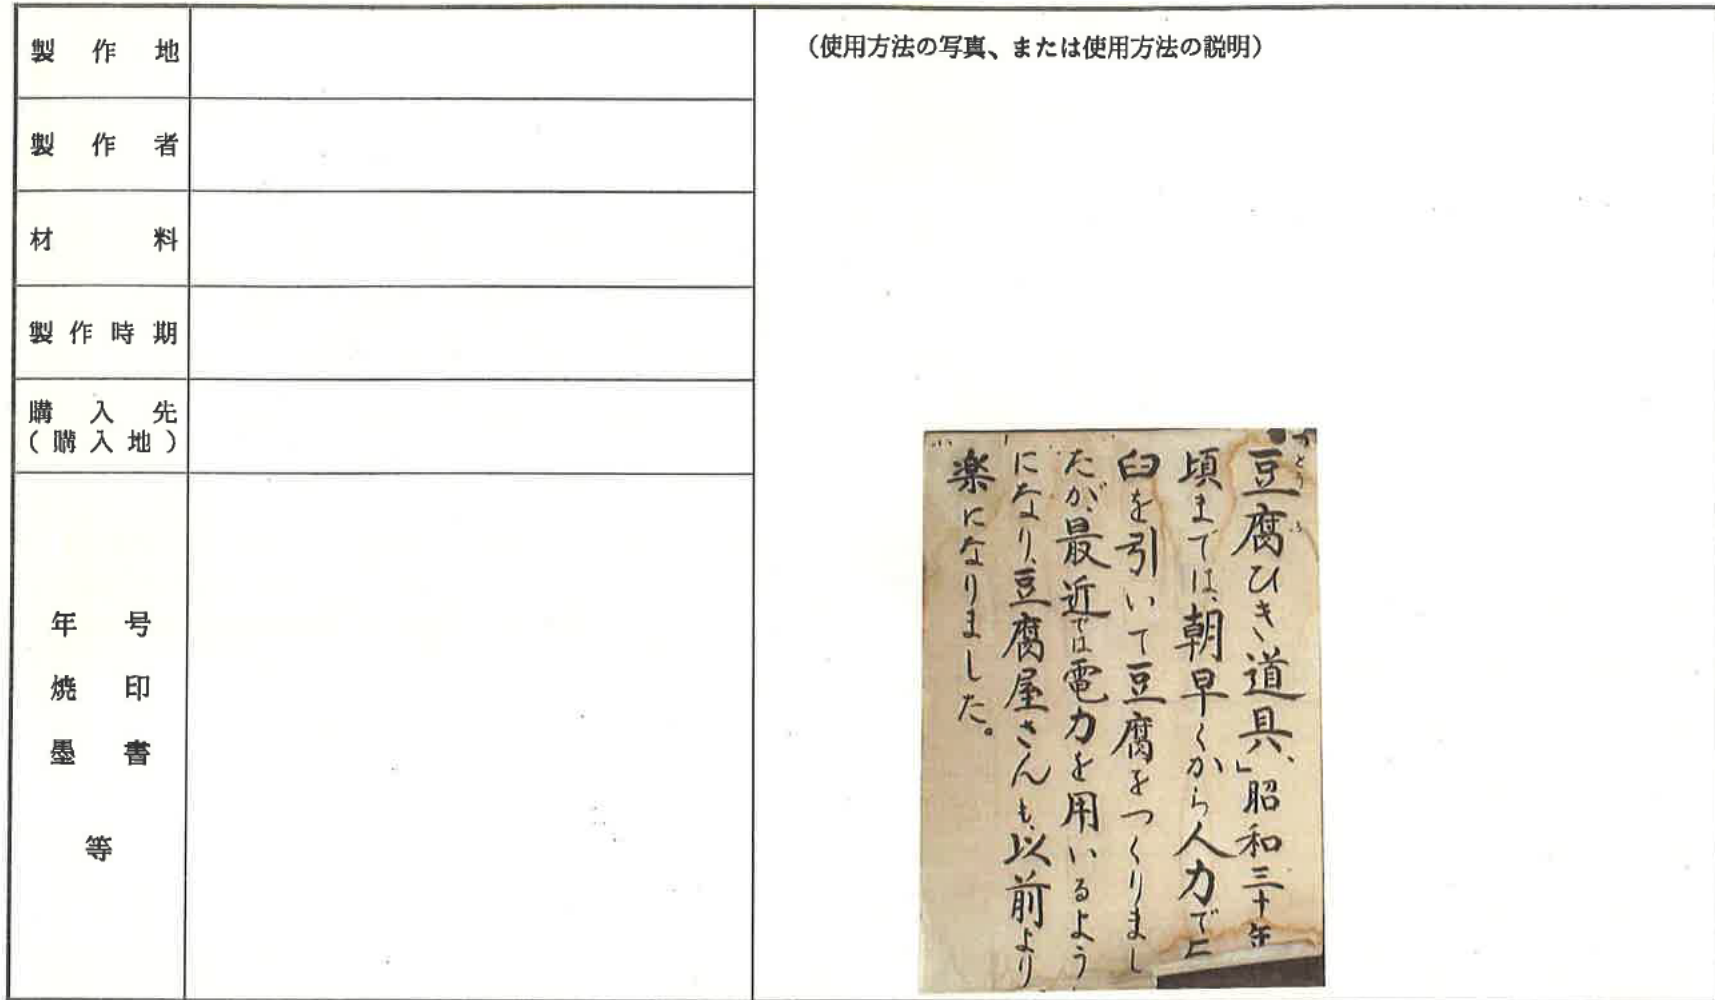 製作地
製作者
材料
製作時期
購入先
(購入地)
年号
焼印
墨書
等
(使用方法の写真、または使用方法の説明)
とうふ
豆腐ひき道具、」昭和三十年
頃までは、朝早くから人力で
臼を引いて豆腐をつくりまし
たが、最近では電力を用いるよう
になり、豆腐屋さんも、以前より
楽になりました。